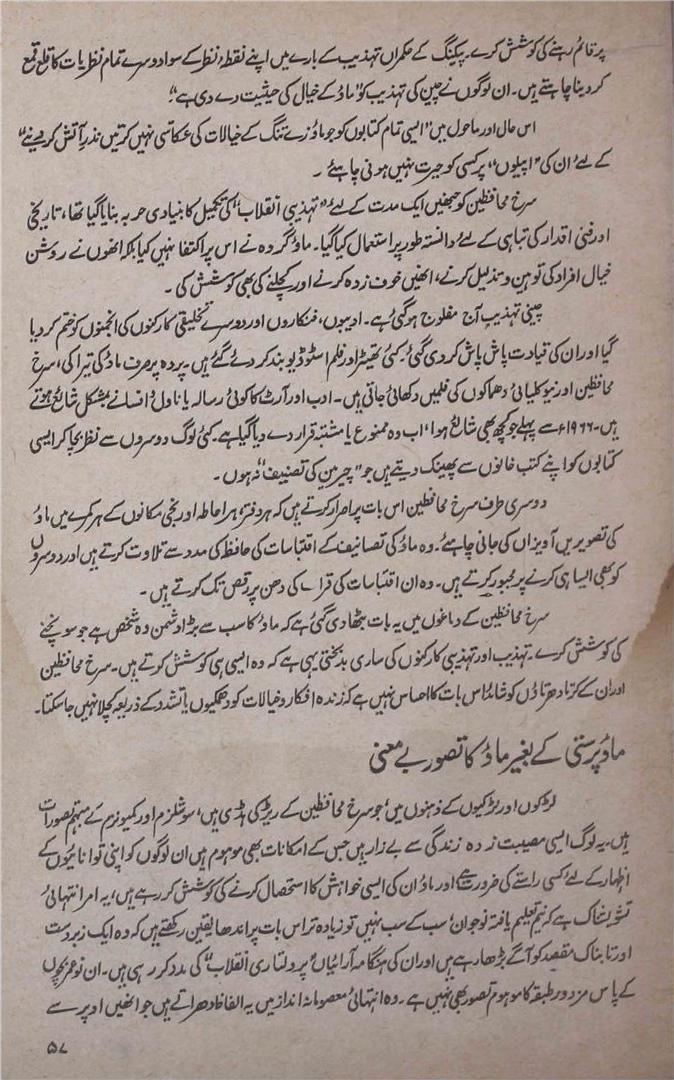 پر قائم رہنے کی کوشش کرے۔ پیکنگ کے حکمراں تہذیب کے بارے میں اپنے نقطۂ نظر کے سوا دوسرے تمام نظریات کا قلع قمع
کر دینا چاہتے ہیں۔ ان لوگوں نے چین کی تہذیب کو "ماؤ کے خیال کی حیثیت دے دی ہے"۔
اس حال اور ماحول میں "ایسی تمام کتابوں کو جو ماؤزے تنگ کے خیالات کی عکاسی نہیں کرتیں نذرِ آتش کر دینے"
کے لئے ان کی "اپیلوں" پر کسی کو حیرت نہیں ہونی چاہئے۔
سرخ محافظین کو جنھیں ایک مدت کے لئے "تہذیبی انقلاب" کی تکمیل کا بنیادی حربہ بنایا گیا تھا، تاریخی
اور فنی اقدار کی تباہی کے لئے دانستہ طور پر استعمال کیا گیا۔ ماؤ گروہ نے اس پر اکتفا نہیں کیا بلکہ انھوں نے روشن
خیال افراد کی توہین و تذلیل کرنے، انھیں خوف زدہ کرنے اور کچلنے کی بھی کوشش کی۔
چینی تہذیب آج مفلوج ہوگئی ہے۔ ادیبوں، فنکاروں اور دوسرے تخلیقی کارکنوں کی انجمنوں کو ختم کر دیا
گیا اور ان کی قیادت پاش پاش کر دی گئی۔ کئی تھیٹر اور فلم اسٹوڈیو بند کر دئے گئے ہیں۔ پردہ پر صرف ماؤ کی تیراکی، سرخ
محافظین اور نیوکلیائی دھماکوں کی فلمیں دکھائی جاتی ہیں۔ ادب اور آرٹ کا کوئی رسالہ یا ناول و افسانے بمشکل شائع ہوتے
ہیں۔ ۱۹۶۶ء سے پہلے جو کچھ بھی شائع ہوا، اب وہ ممنوع یا مشتبہ قرار دے دیا گیا ہے۔ کئی لوگ دوسروں سے نظر بچا کر ایسی
کتابوں کو اپنے کتب خانوں سے پھینک دیتے ہیں جو "چیرمین کی تصنیف" نہ ہوں۔
دوسری طرف سرخ محافظین اس بات پر اصرار کرتے ہیں کہ ہر دفتر، ہر احاطہ اور نجی مکانوں کے ہر کمرے میں ماؤ
کی تصویریں آویزاں کی جانی چاہئے۔ وہ ماؤ کی تصانیف کے اقتباسات کی حافظہ کی مدد سے تلاوت کرتے ہیں اور دوسروں
کو بھی ایسا ہی کرنے پر مجبور کرتے ہیں۔ وہ ان اقتباسات کی قرأت کی دھن پر رقص تک کرتے ہیں۔
سرخ محافظین کے دماغوں میں یہ بات بٹھا دی گئی ہے کہ ماؤ کا سب سے بڑا دشمن وہ شخص ہے جو سونچنے
کی کوشش کرے۔ تہذیب اور تہذیبی کارکنوں کی ساری بدبختی یہی ہے کہ وہ ایسی ہی کوشش کرتے ہیں۔ سرخ محافظین
اور ان کے کرتا دھرتاؤں کو شائد اس بات کا احساس نہیں ہے کہ زندہ افکار و خیالات کو دھمکیوں یا تشدد کے ذریعہ کچلا نہیں جاسکتا۔
ماؤ پرستی کے بغیر ماؤ کا تصور بے معنی
لڑکوں اور لڑکیوں کے ذہنوں میں، جو سرخ محافظین کے ریڑھ کی ہڈی ہیں، سوشلزم اور کمیونزم کے مبہم تصورات
ہیں۔ یہ لوگ ایسی مصیبت زدہ زندگی سے بے زار ہیں جس کے امکانات بھی موہوم ہیں ان لوگوں کو اپنی توانائیوں کے
اظہار کے لئے کسی راستے کی ضرورت ہے اور ماؤ ان کی ایسی خواہش کا استحصال کرنے کی کوشش کر رہے ہیں، یہ امر انتہائی
تشویشناک ہے کہ نیم تعلیم یافتہ نوجوان، سب کے سب نہیں تو زیادہ تر اس بات پر اندھا یقین رکھتے ہیں کہ وہ ایک زبردست
اور تابناک مقصد کو آگے بڑھا رہے ہیں اور ان کی ہنگامہ آرائیاں "پرولتاری انقلاب" کی مدد کر رہی ہیں۔ ان نوعمر بچوں
کے پاس مزدور طبقہ کا موہوم تصور بھی نہیں ہے۔ وہ انتہائی معصومانہ انداز میں یہ الفاظ دھراتے ہیں جو انھیں اوپر سے
۵۷